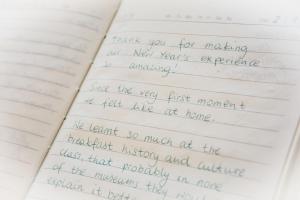 Thank you for making
our New Year's experience
so amazing!
Since the very first moment
we felt like at home.
We learnt so much at the
breakfast history and culture
class that probably in none
of the museums they would
explain it better